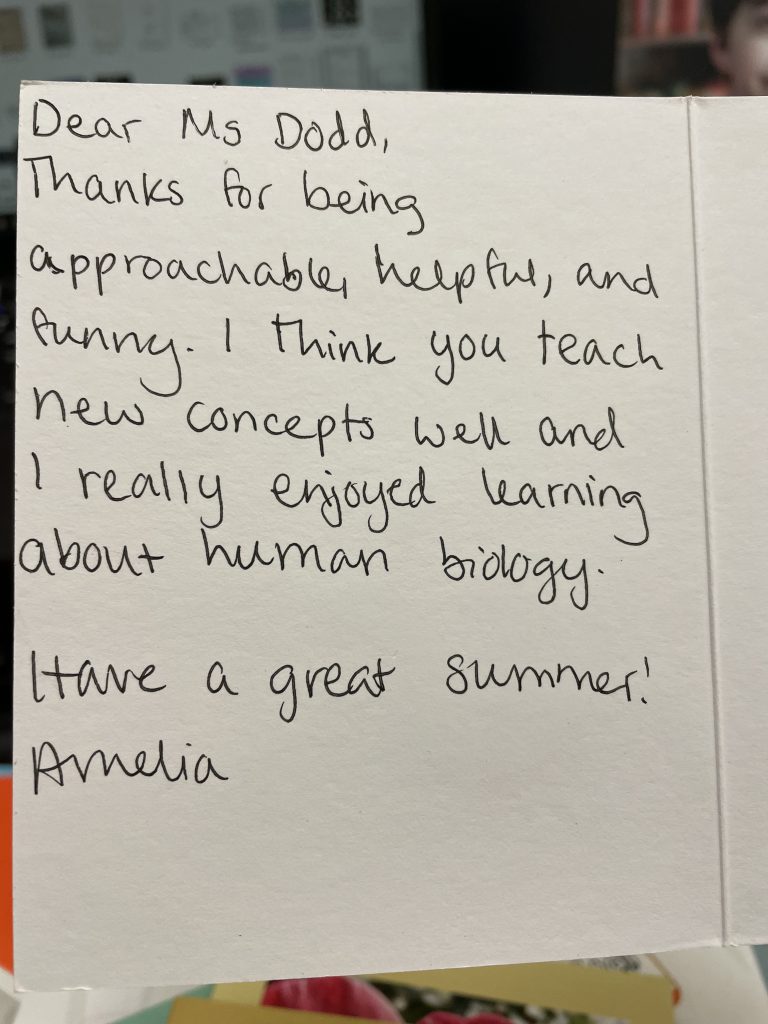 Dear Ms Dodd,
Thanks for being
approachable, helpful, and
funny. I think you teach
new concepts well and
I really enjoyed learning
about human biology.
Have a great summer!
Amelia